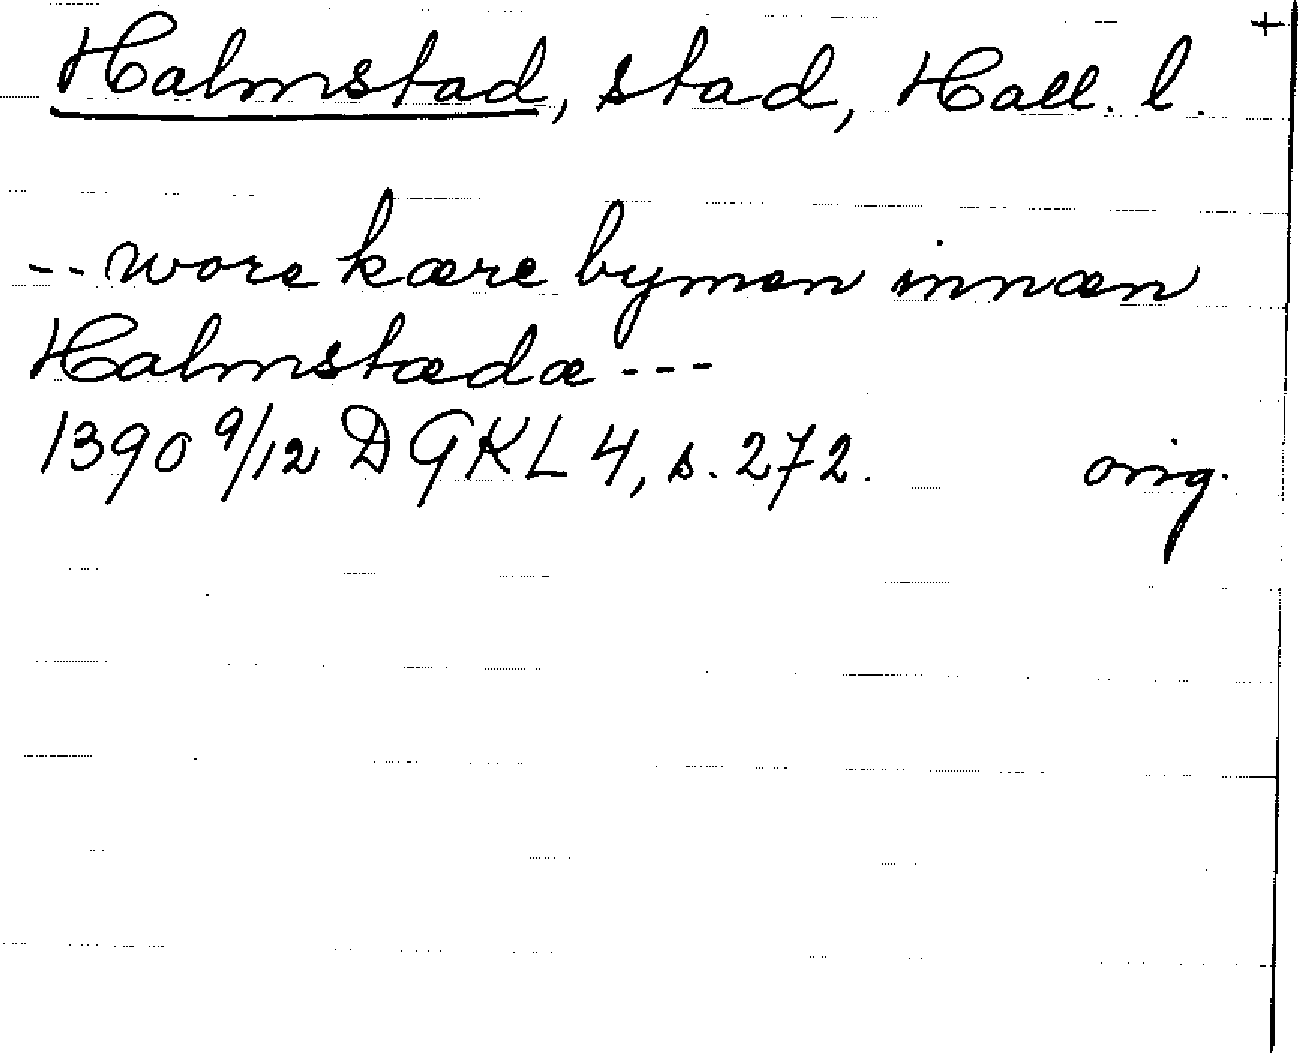 Halmstad, stad, Hall. l. +
-- wore kære bymen innæn
Halmstædæ ---
1390 9/12 DGKL 4, s. 272. orig.